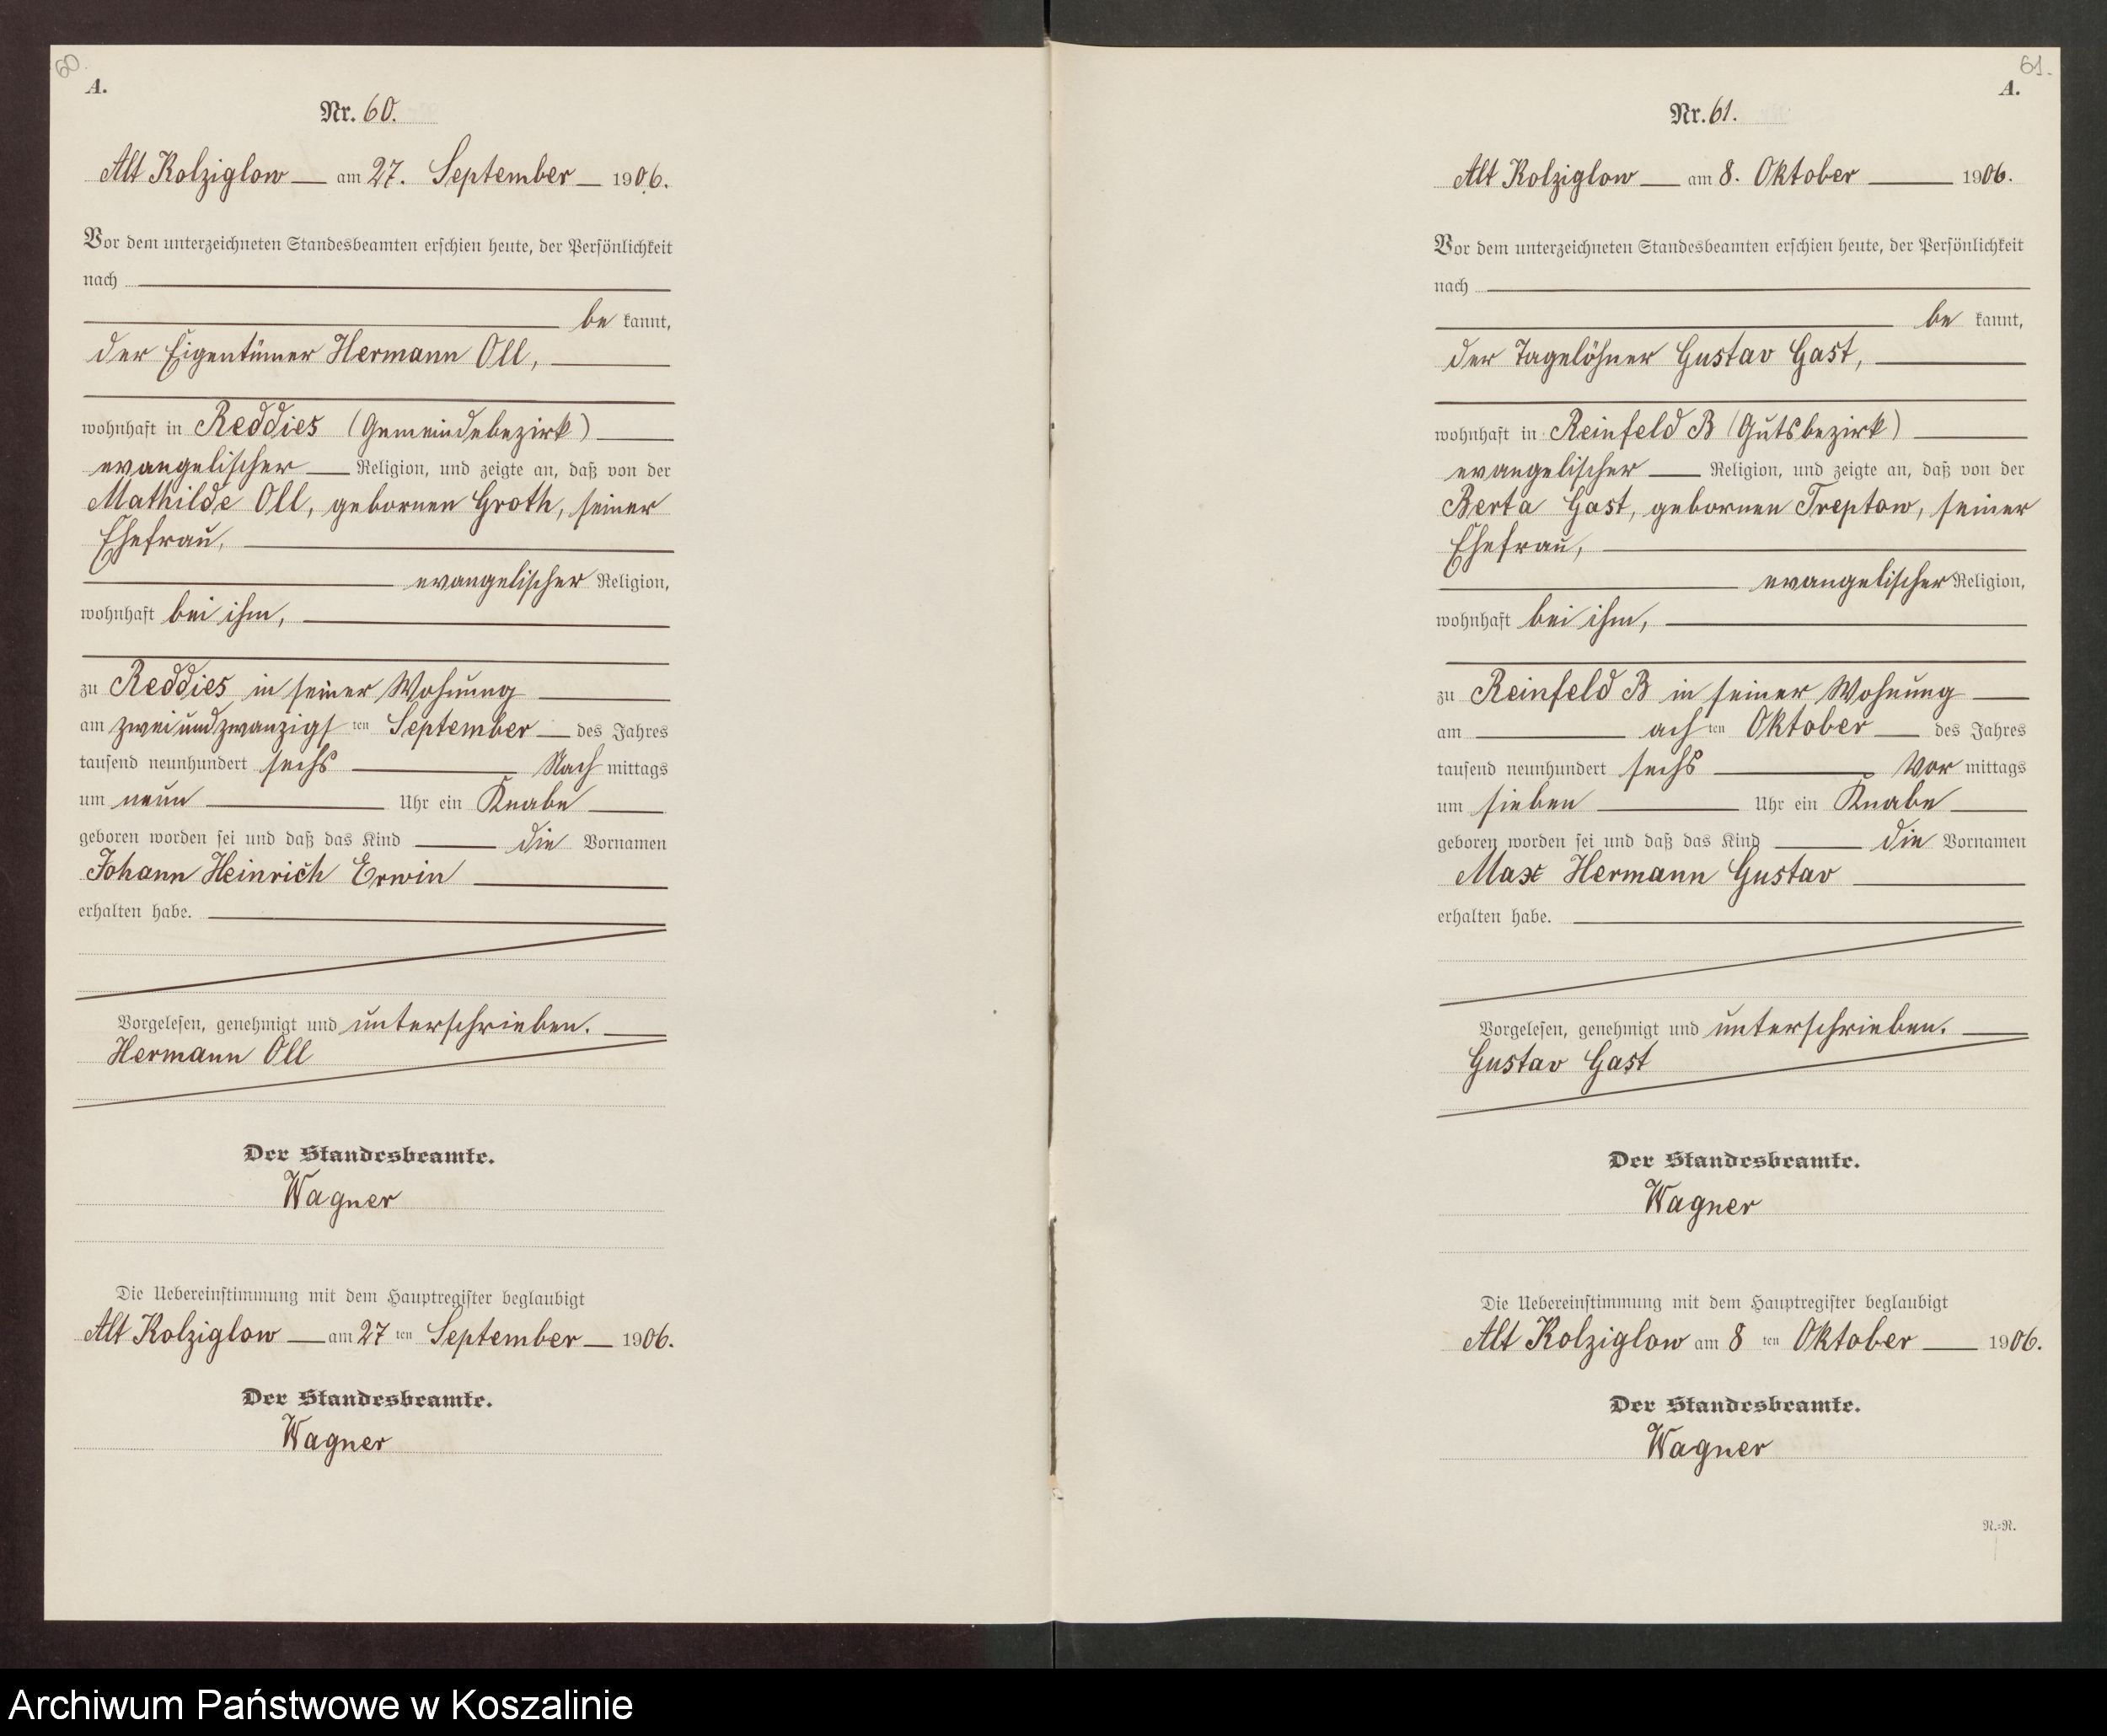 60.
A.
Nr. 60.
Alt Kolziglow am 27. September 1906.
Vor dem unterzeichneten Standesbeamten erschien heute, der Persönlichkeit
nach
be kannt,
der Eigentümer Hermann Oll,
wohnhaft in Reddies (Gemeindebezirk)
evangelischer Religion, und zeigte an, daß von der
Mathilde Oll, gebornen Groth, seiner
Ehefrau,
evangelischer Religion,
wohnhaft bei ihm,
zu Reddies in seiner Wohnung
am zweiundzwanzigsten September des Jahres
tausend neunhundert sechs Nach mittags
um neun Uhr ein Knabe
geboren worden sei und daß das Kind die Vornamen
Johann Heinrich Erwin
erhalten habe.
Vorgelesen, genehmigt und unterschrieben.
Hermann Oll
Der Standesbeamte.
Wagner
Die Uebereinstimmung mit dem Hauptregister beglaubigt
Alt Kolziglow am 27 ten September 1906.
Der Standesbeamte.
Wagner
61.
A.
Nr. 61.
Alt Kolziglow am 8. Oktober 1906.
Vor dem unterzeichneten Standesbeamten erschien heute, der Persönlichkeit
nach
be kannt,
der Tagelöhner Gustav Gast,
wohnhaft in Reinfeld B (Gutsbezirk)
evangelischer Religion, und zeigte an, daß von der
Berta Gast, gebornen Treptow, seiner
Ehefrau,
evangelischer Religion,
wohnhaft bei ihm,
zu Reinfeld B in seiner Wohnung
am achten Oktober des Jahres
tausend neunhundert sechs Vor mittags
um sieben Uhr ein Knabe
geboren worden sei und daß das Kind die Vornamen
Max Hermann Gustav
erhalten habe.
Vorgelesen, genehmigt und unterschrieben.
Gustav Gast
Der Standesbeamte.
Wagner
Die Uebereinstimmung mit dem Hauptregister beglaubigt
Alt Kolziglow am 8 ten Oktober 1906.
Der Standesbeamte.
Wagner
R.=R.
Archiwum Państwowe w Koszalinie